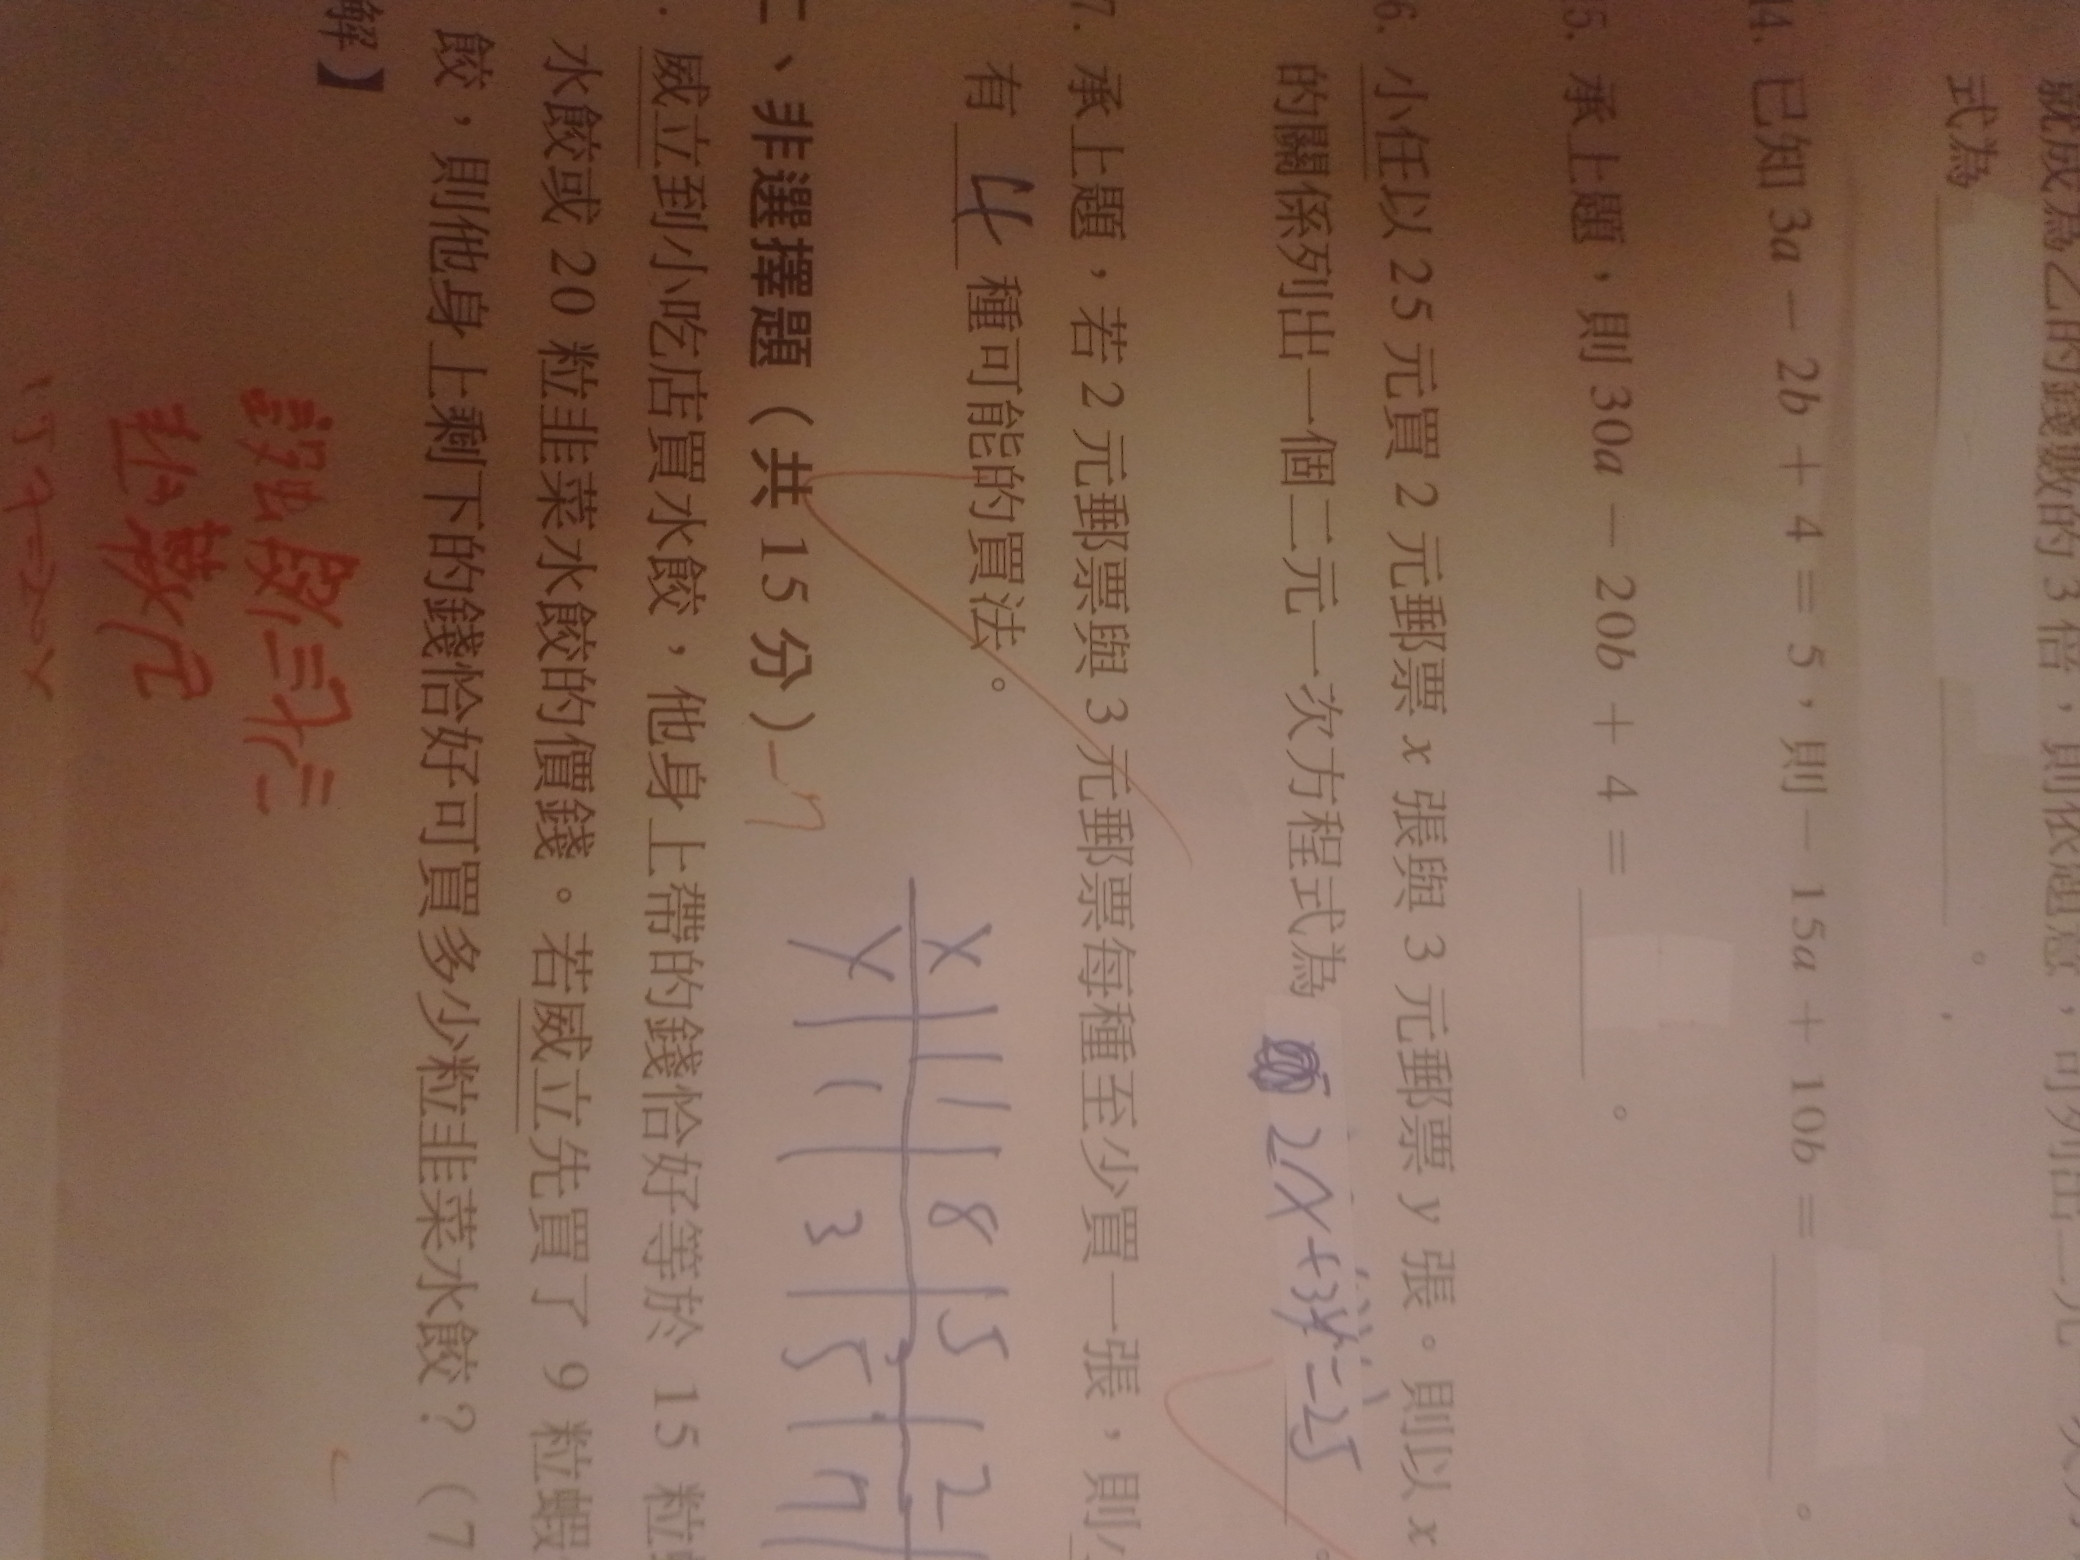 就成為乙的錢數的 3 倍，則依題意，可列出一元一次方
式為
。
14. 已知 3a － 2b ＋ 4 ＝ 5，則－ 15a ＋ 10b ＝
。
15. 承上題，則 30a － 20b ＋ 4 ＝
。
6. 小任以 25 元買 2 元郵票 x 張與 3 元郵票 y 張。則以 x
的關係列出一個二元一次方程式為 2x+3y=25 。
7. 承上題，若 2 元郵票與 3 元郵票每種至少買一張，則小
有 4 種可能的買法。
X 11 8 5 2
Y 1 3 5 7
二、非選擇題（共 15 分）-7
. 威立到小吃店買水餃，他身上帶的錢恰好等於 15 粒
水餃或 20 粒韭菜水餃的價錢。若威立先買了 9 粒蝦
餃，則他身上剩下的錢恰好可買多少粒韭菜水餃？（7
解】